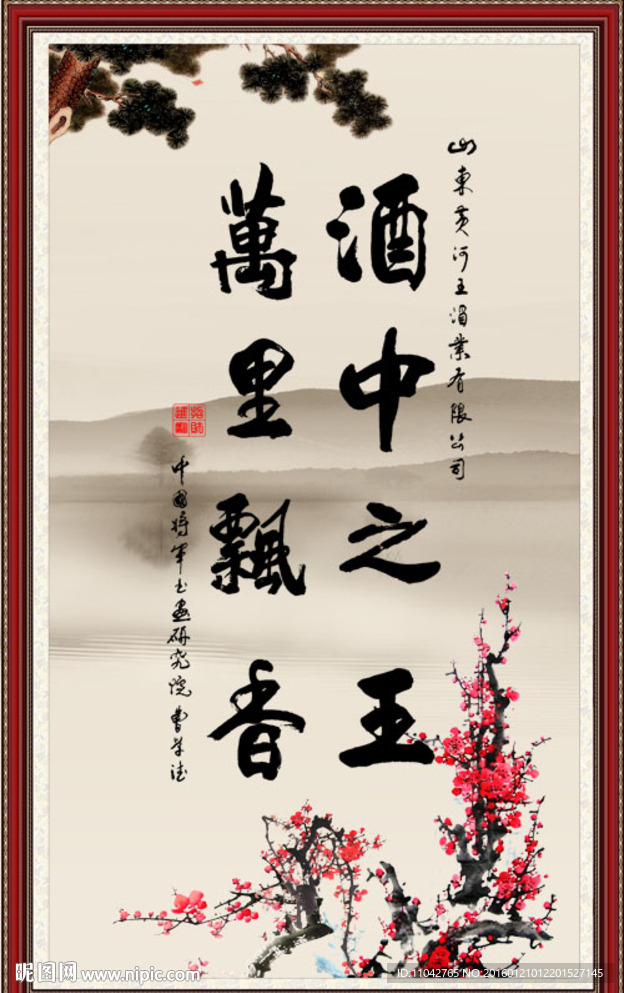 山東黄河王酒業有限公司
酒中之王
萬里飄香
中國将軍书畫研究院
昵图网 www.nipic.com
ID:11042765 NO:20160121012201527145